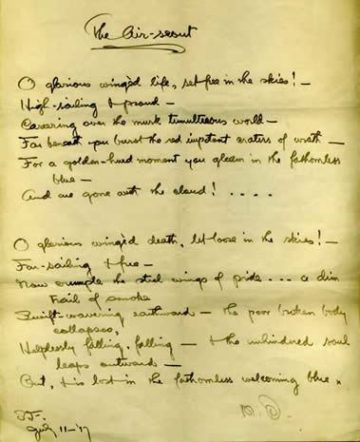 The Air-scout
O glorious wingèd life, set free in the skies! —
High-sailing & proud —
Careering over the murk tumultuous world —
Far beneath you burst the red impotent craters of wrath —
For a golden-hued moment you gleam in the fathomless
blue —
And are gone with the cloud! . . . .
O glorious wingèd death, let loose in the skies! —
Far-sailing & free —
Now crumple the steel wings of pride . . . a dim
trail of smoke
Swift-wavering earthward — the poor broken body
collapses,
Helplessly falling, falling — & the unhindered soul
leaps outwards —
But, & is lost in the fathomless welcoming blue.
July 11 — '17